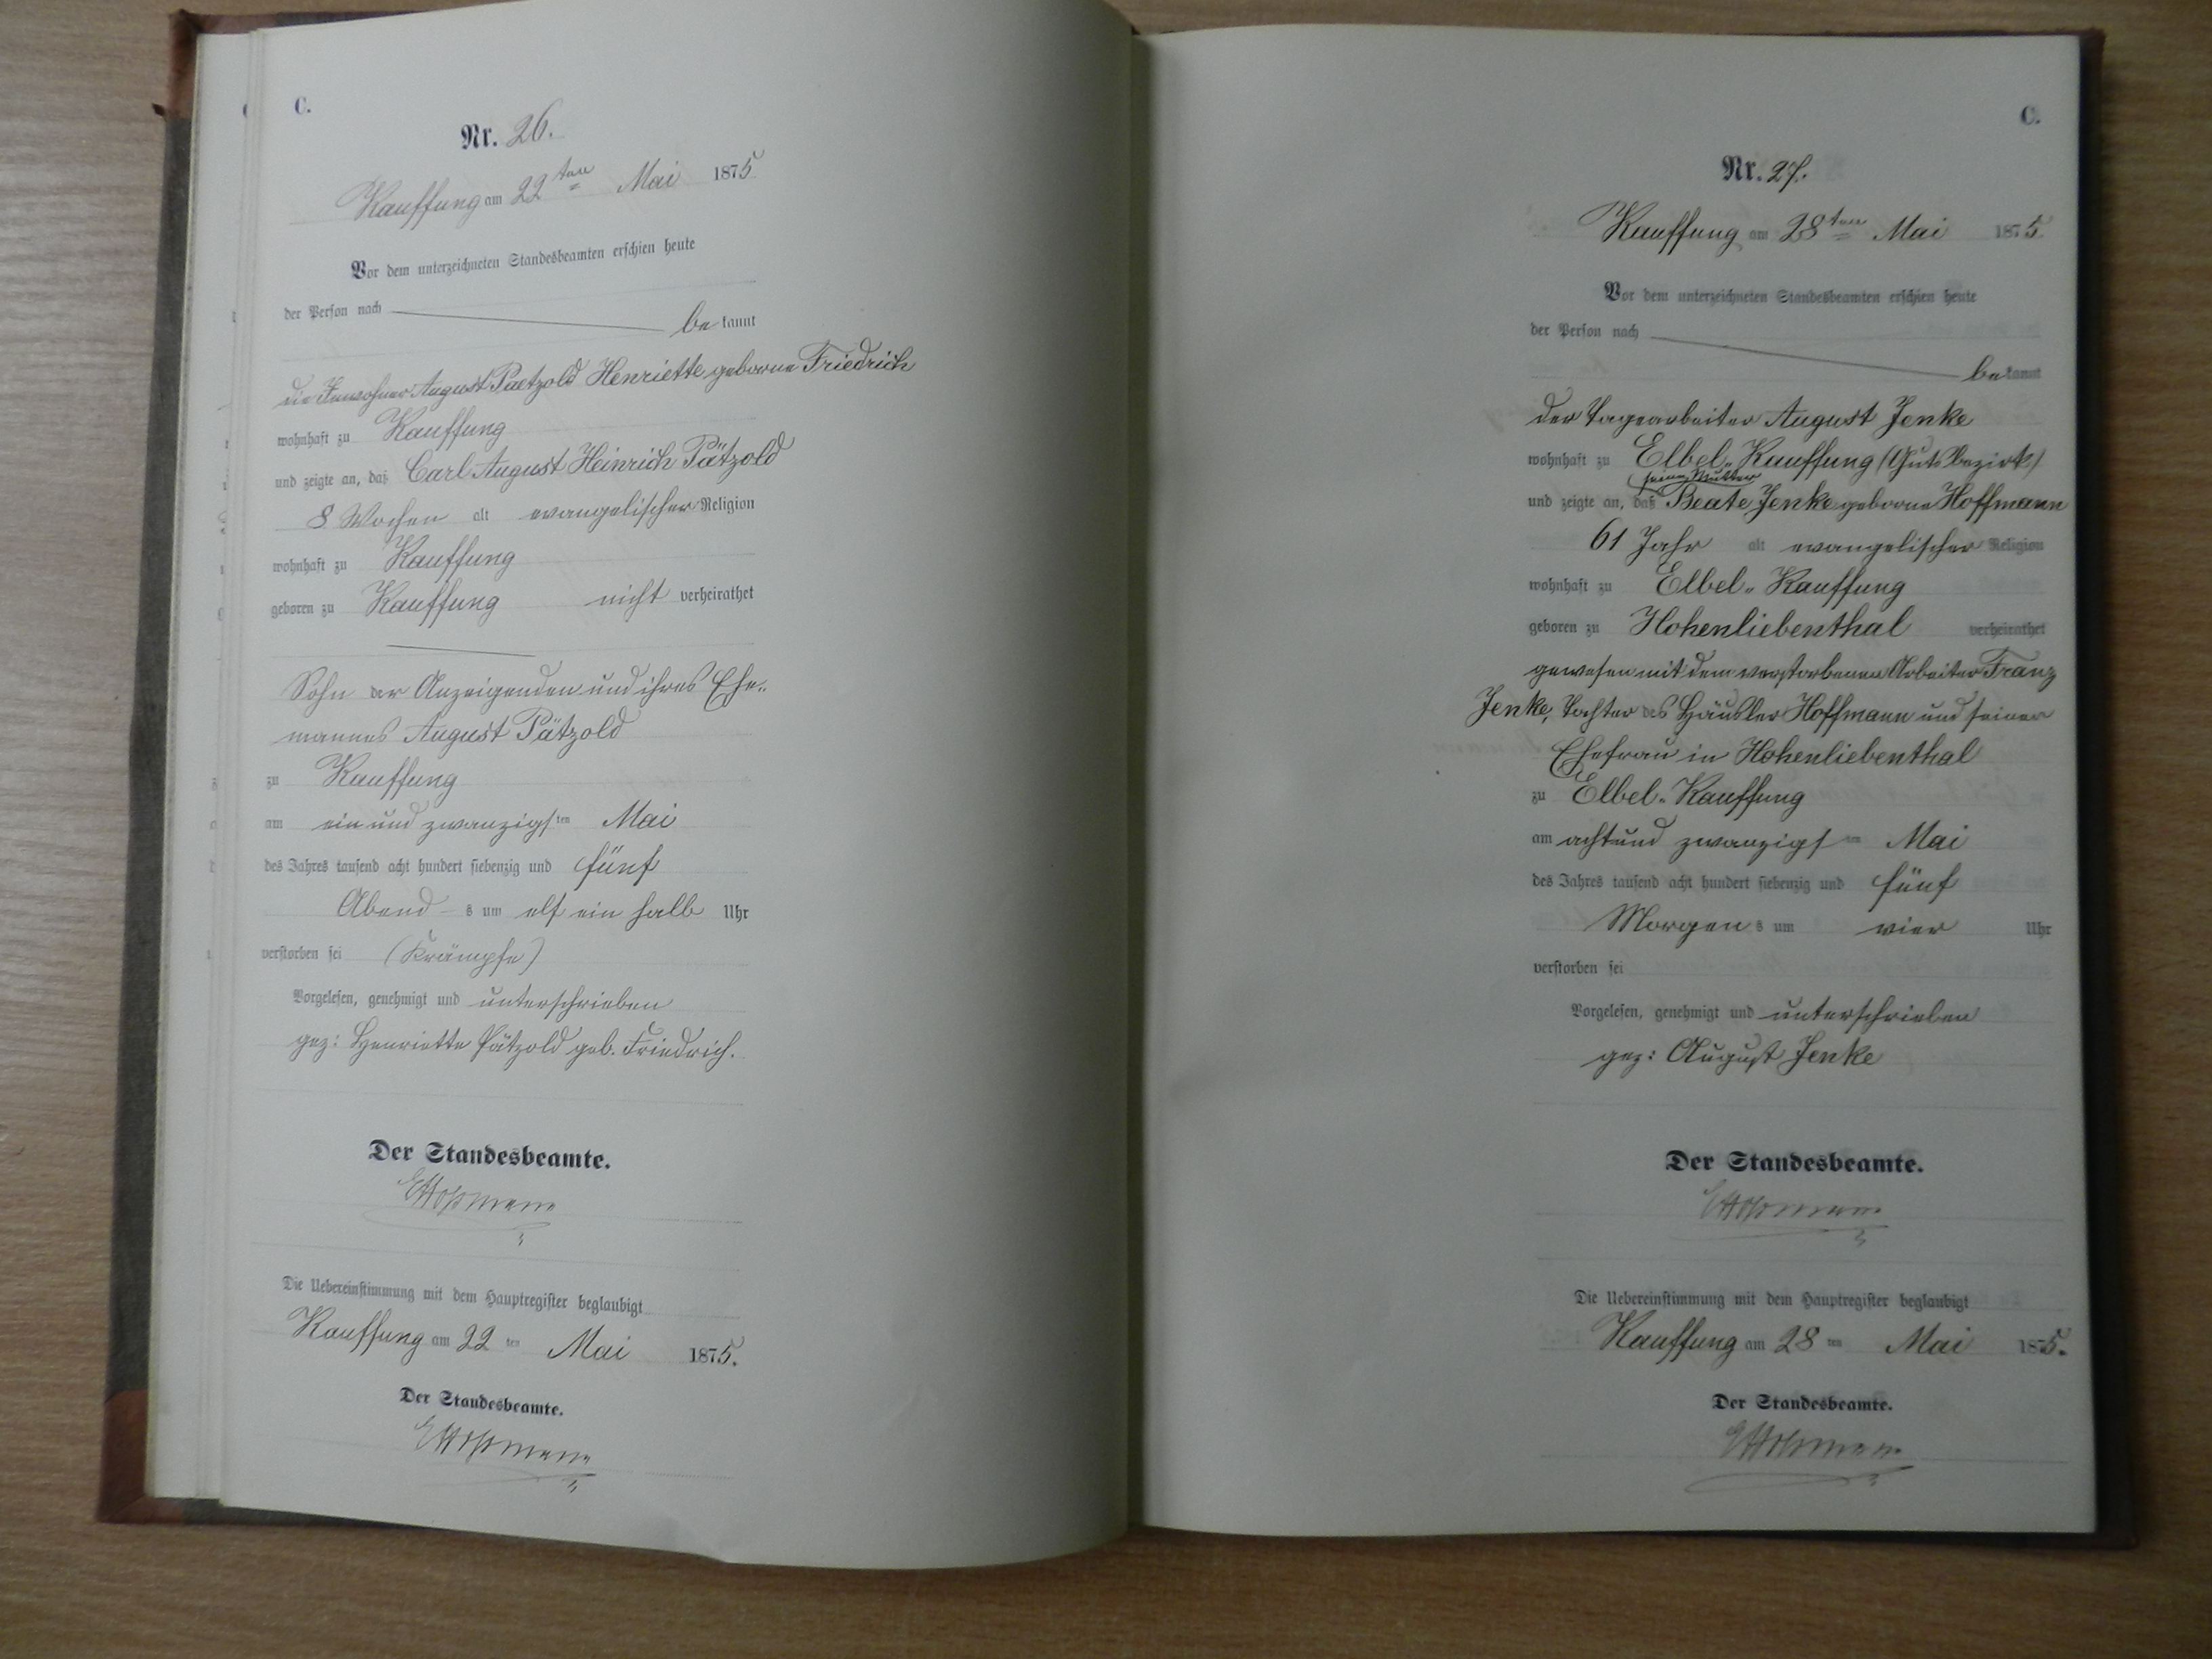 C.
Nr. 26.
Kauffung am 22ten Mai 1875
Vor dem unterzeichneten Standesbeamten erschien heute
der Person nach
bekannt
die Inwohner August Paetzold Henriette geborne Friedrich
wohnhaft zu Kauffung
und zeigte an, daß Carl August Heinrich Pätzold
8 Wochen alt evangelischer Religion
wohnhaft zu Kauffung
geboren zu Kauffung nicht verheirathet
Sohn der Anzeigenden und ihres Ehe-
mannes August Pätzold
zu Kauffung
am ein und zwanzigsten Mai
des Jahres tausend acht hundert siebenzig und fünf
Abends um elf ein halb Uhr
verstorben sei (Krämpfe)
Vorgelesen, genehmigt und unterschrieben
gez: Henriette Pätzold geb. Friedrich.
Der Standesbeamte.
Die Uebereinstimmung mit dem Hauptregister beglaubigt
Kauffung am 22ten Mai 1875.
Der Standesbeamte.
C.
Nr. 27.
Kauffung am 28ten Mai 1875
Vor dem unterzeichneten Standesbeamten erschien heute
der Person nach
bekannt
der Tagearbeiter August Jenke
wohnhaft zu Elbel-Kauffung (Gutsbezirk)
seine Mutter
und zeigte an, daß Beate Jenke geborne Hoffmann
61 Jahr alt evangelischer Religion
wohnhaft zu Elbel-Kauffung
geboren zu Hohenliebenthal verheirathet
gewesen mit dem verstorbenen Arbeiter Franz
Jenke, Tochter des Häusler Hoffmann und seiner
Ehefrau in Hohenliebenthal
zu Elbel-Kauffung
am achtund zwanzigsten Mai
des Jahres tausend acht hundert siebenzig und fünf
Morgens um vier Uhr
verstorben sei
Vorgelesen, genehmigt und unterschrieben
gez: August Jenke
Der Standesbeamte.
Die Uebereinstimmung mit dem Hauptregister beglaubigt
Kauffung am 28ten Mai 1875.
Der Standesbeamte.